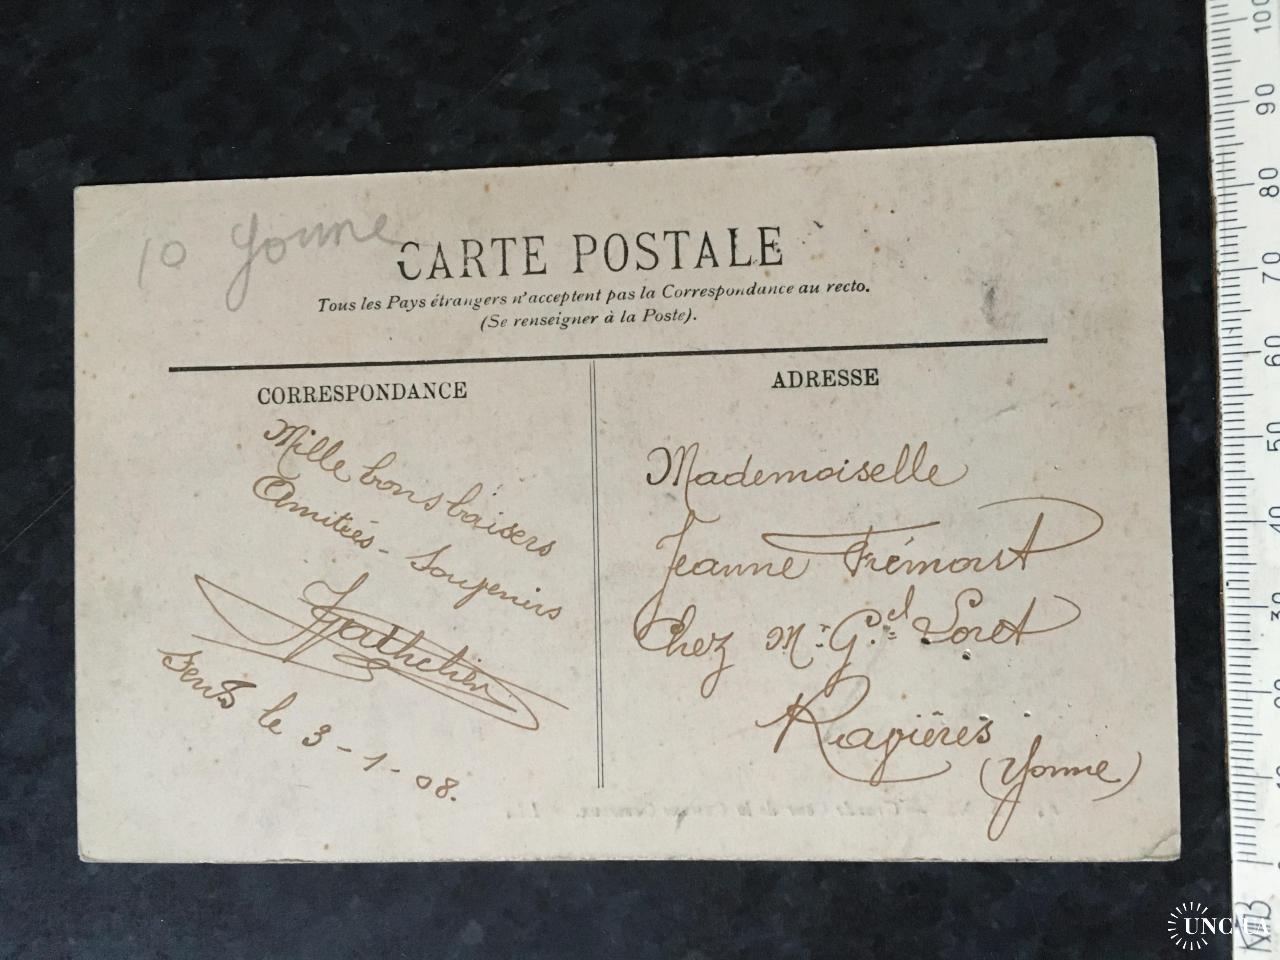 10 Yonne
CARTE POSTALE
Tous les Pays étrangers n'acceptent pas la Correspondance au recto.
(Se renseigner à la Poste).
CORRESPONDANCE
Mille bons baisers
Amitiés - Souvenirs
Sens le 3-1-08.
ADRESSE
Mademoiselle
Jeanne
Chez Mr. Gd. Loret
Ravières
(Yonne)
100
90
80
70
60
50
40
30
20
10
UNC.UA